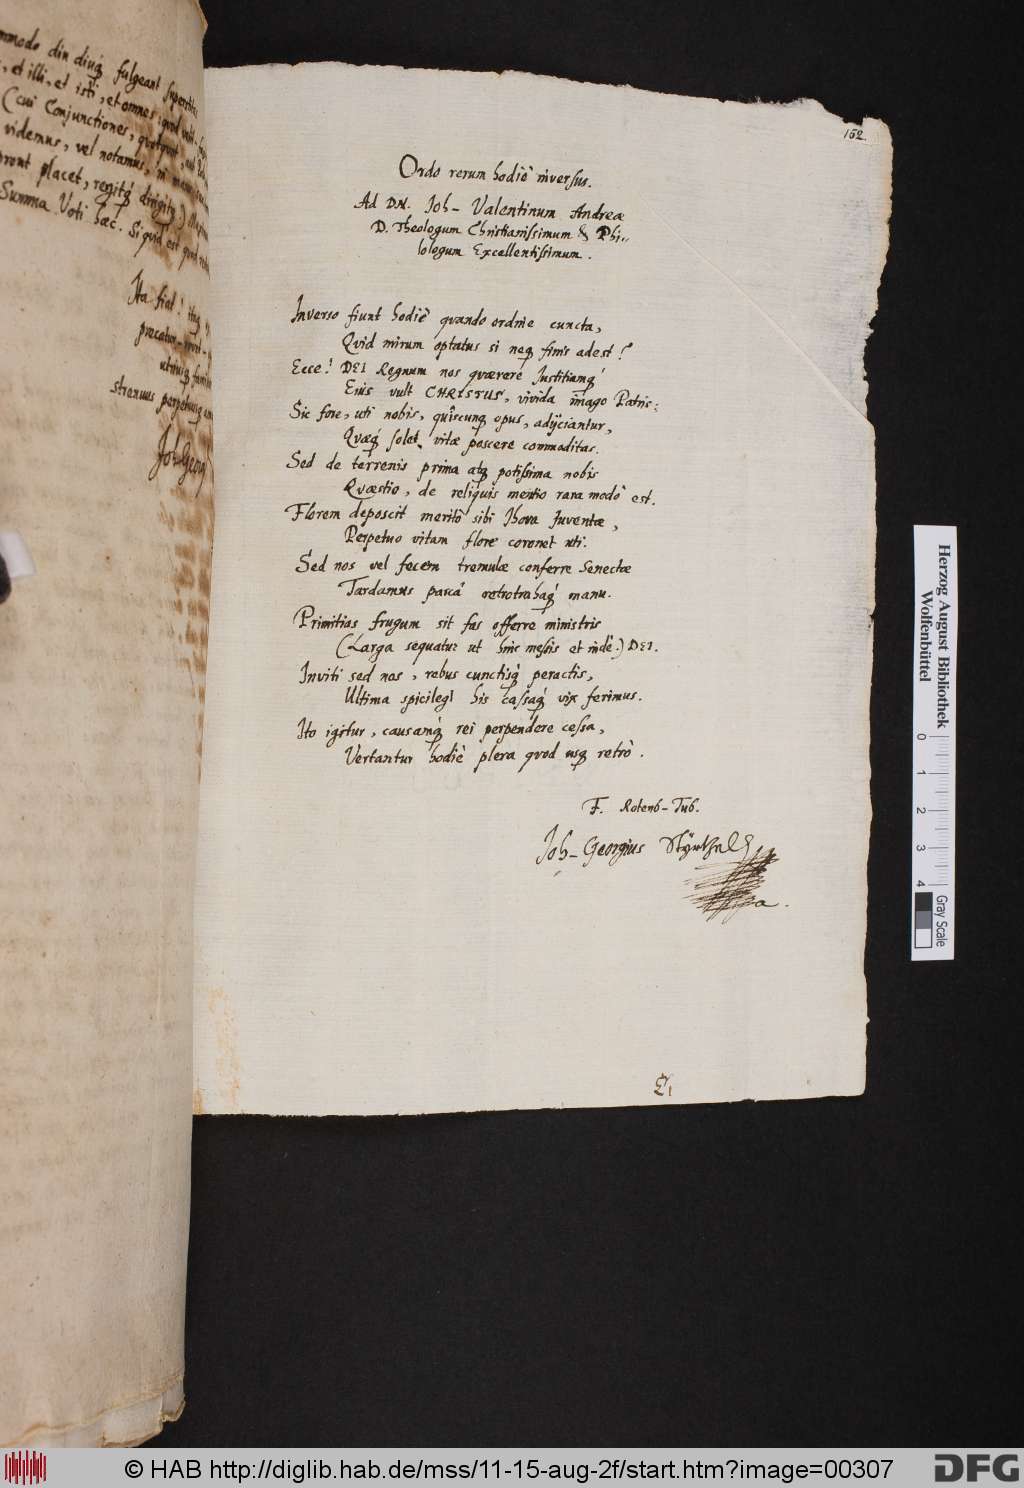 mmodo diu diuq́ fulgeant superstites
, et illi, et isti, et omnes, quod
(cui Conjunctiones, quotquot, aut
videmus, vel notamus, in
placet, regitq́ dirigitq́)
Summa Voti haec. Si quid est quod
Ita fiat! itaq
precatur
utriusq familiae
strenuus perpetuusq
Joh Georg
162.
Ordo rerum hodiè inversus.
Ad DN. Joh- Valentinum Andreæ
D. Theologum Christianissimum & Phi-
lologum Excellentissimum.
Inverso fiunt hodiè quando ordine cuncta,
Quid mirum optatus si neq finis adest?
Ecce! DEI Regnum nos quærere Justitiamq́
Eius vult CHRISTUS, vivida imago Patris:
Sic fore, uti nobis, quîscunq opus, adijciantur,
Quæq́ solet vitæ poscere commoditas.
Sed de terrenis prima atq potissima nobis
Quæstio, de reliquis mentio rara modò est.
Florem deposcit meritò sibi Jhova Juventæ,
Perpetuo vitam flore coronet uti.
Sed nos vel fecem tremulæ conferre Senectæ
Tardamus parcâ retrotrahaq́ manu.
Primitias frugum sit fas offerre ministris
(Larga sequatur ut hinc messis et inde.) DEI.
Inviti sed nos, rebus cunctisq́ peractis,
Ultima spicilegî his cassaq́ vix ferimus.
Ito igitur, causamq́ rei perpendere cessa,
Vertantur hodiè plera quod usq retrò.
F. Rotenb- Tub.
Joh- Georgius
Herzog August Bibliothek
Wolfenbüttel
0 1 2 3 4
Gray Scale
© HAB http://diglib.hab.de/mss/11-15-aug-2f/start.htm?image=00307
DFG